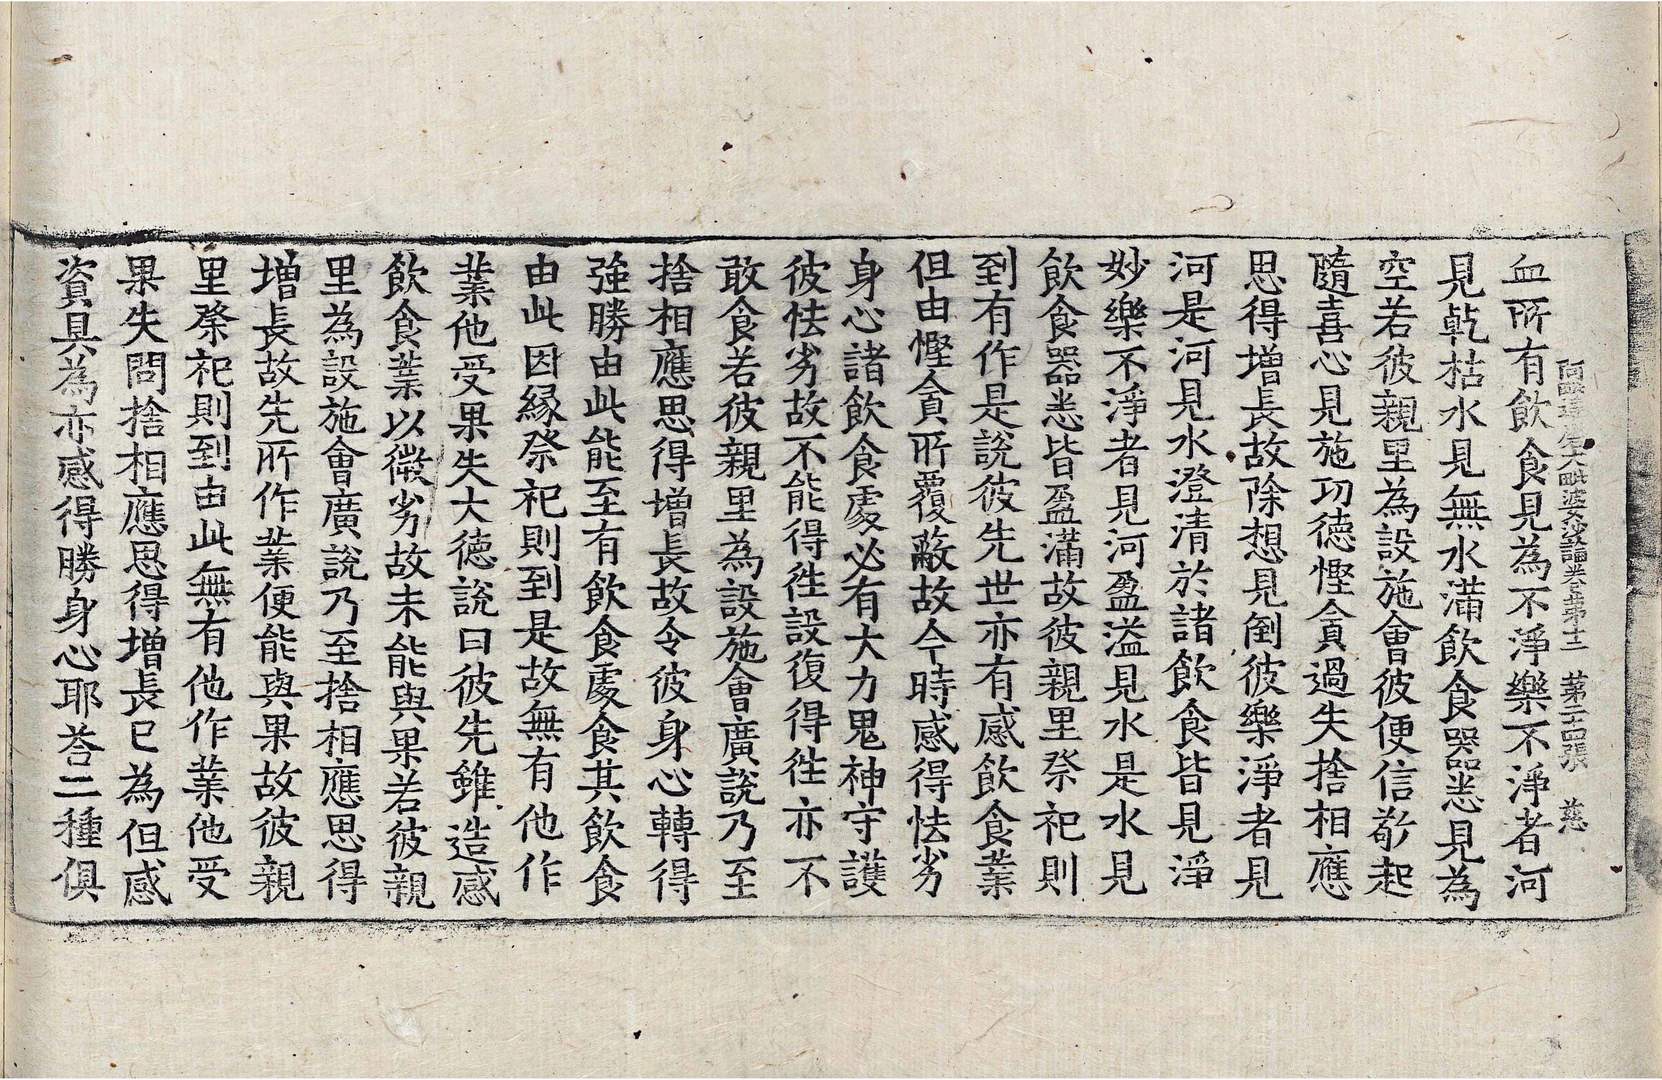 阿毗達磨大毗婆沙論卷第十二 第二十四張 慈
血所有飲食見為不淨樂不淨者河
見乾枯水見無水滿飲食器悉見為
空若彼親里為設施會彼便信敬起
隨喜心見施功德慳貪過失捨相應
思得增長故除想見倒彼樂淨者見
河是河見水澄清於諸飲食皆見淨
妙樂不淨者見河盈溢見水是水見
飲食器悉皆盈滿故彼親里祭祀則
到有作是說彼先世亦有感飲食業
但由慳貪所覆蔽故今時感得怯劣
身心諸飲食處必有大力鬼神守護
彼怯劣故不能得往設復得往亦不
敢食若彼親里為設施會廣說乃至
捨相應思得增長故令彼身心轉得
強勝由此能至有飲食處食其飲食
由此因緣祭祀則到是故無有他作
業他受果失大德說曰彼先雖造感
飲食業以微劣故未能與果若彼親
里為設施會廣說乃至捨相應思得
增長故先所作業便能與果故彼親
里祭祀則到由此無有他作業他受
果失問捨相應思得增長已為但感
資具為亦感得勝身心耶荅二種俱